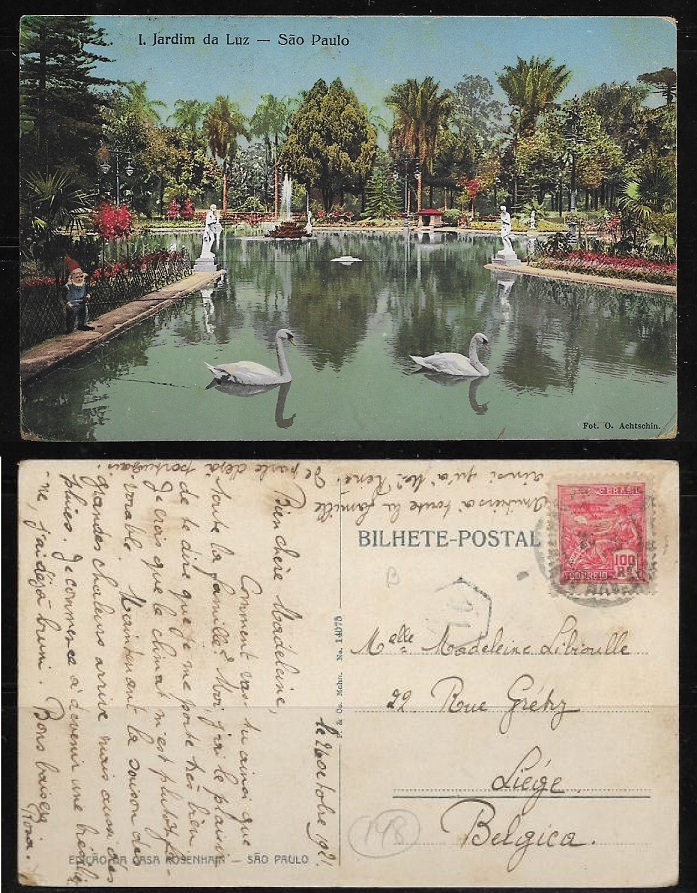 I. Jardim da Luz — São Paulo
Fot. O. Achtschin.
BILHETE-POSTAL
BRASIL
CORREIO
100
RS
Melle Madeleine Libioulle
22 Rue Grétry
Liège.
Belgica.
198
B
No. 14075
EDIÇÃO DA CASA ROSENHAIN — SÃO PAULO
le 2 octobre 1921
Bien chère Madeleine,
Comment vas-tu ainsi que
toute la famille? Moi, j'ai le plaisir
de te dire que je me porte très bien.
Je crois que le climat m'est plutôt fa-
vorable. Maintenant la saison de
grandes chaleurs arrive mais aussi des
pluies. Je commence à devenir une brésilie-
ne, j'ai déjà bruni. Bons baisers
Rosa.
toute la famille
ainsi qu'à René. Je parle déjà
portugais